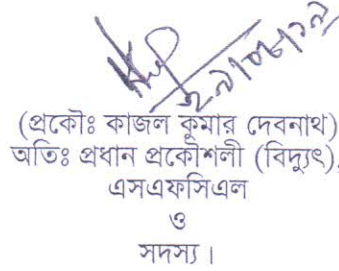 ২৯/০৮/১৯
(প্রকৌঃ কাজল কুমার দেবনাথ)
অতিঃ প্রধান প্রকৌশলী (বিদ্যুৎ),
এসএফসিএল
ও
সদস্য।